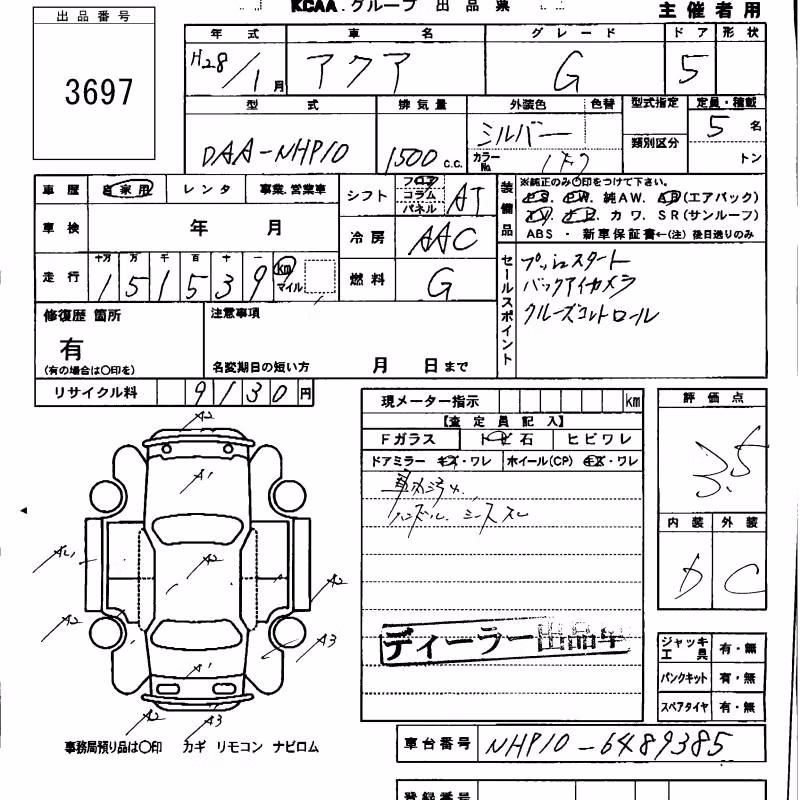 KCAA.グループ 出品票
主催者用
出品番号
3697
年式 車名 グレード ドア 形状
H28/1月 アクア G 5
型式 排気量 外装色 色替 型式指定 定員・積載
類別区分
DAA-NHP10 1500c.c. シルバー 5名
カラーNo. 1F7 トン
車歴 自家用 レンタ 事業.営業車
車検 年 月
走行 十万 万 千 百 十 一
151539 km マイル
シフト フロア コラム パネル AT
冷房 AAC
燃料 G
装備品
※純正のみ○印をつけて下さい。
PS. PW. 純AW. AB(エアバック)
TV. ナビ. カワ. SR(サンルーフ)
ABS ・ 新車保証書←(注) 後日送りのみ
セールスポイント
プッシュスタート
バックアイカメラ
クルーズコントロール
修復歴 箇所
有
(有の場合は○印を)
注意事項
名変期日の短い方 月 日まで
リサイクル料 9130円
現メーター指示 km
【査定員記入】
Fガラス トビ石 ヒビワレ
ドアミラー キズ・ワレ ホイール(CP) キズ・ワレ
車内汚れ
ハンドル、シートスレ
ディーラー出品車
評価点
3.5
内装 外装
D C
A2
A1
A2
A1
A2
A2
A3
A1
A2
A3
ジャッキ工具 有・無
パンクキット 有・無
スペアタイヤ 有・無
事務局預り品は○印 カギ リモコン ナビロム
車台番号 NHP10-6489385
登録番号